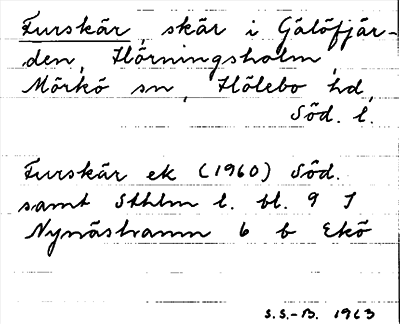 Furskär, skär i Gälöfjär-
den, Hörningsholm,
Mörkö sn, Hölebo hd,
Söd. l.
Furskär ek (1960) Söd.
samt Sthlm l. bl. 9 I
Nynäshamn 6 b Ekö
S.S.-B. 1963